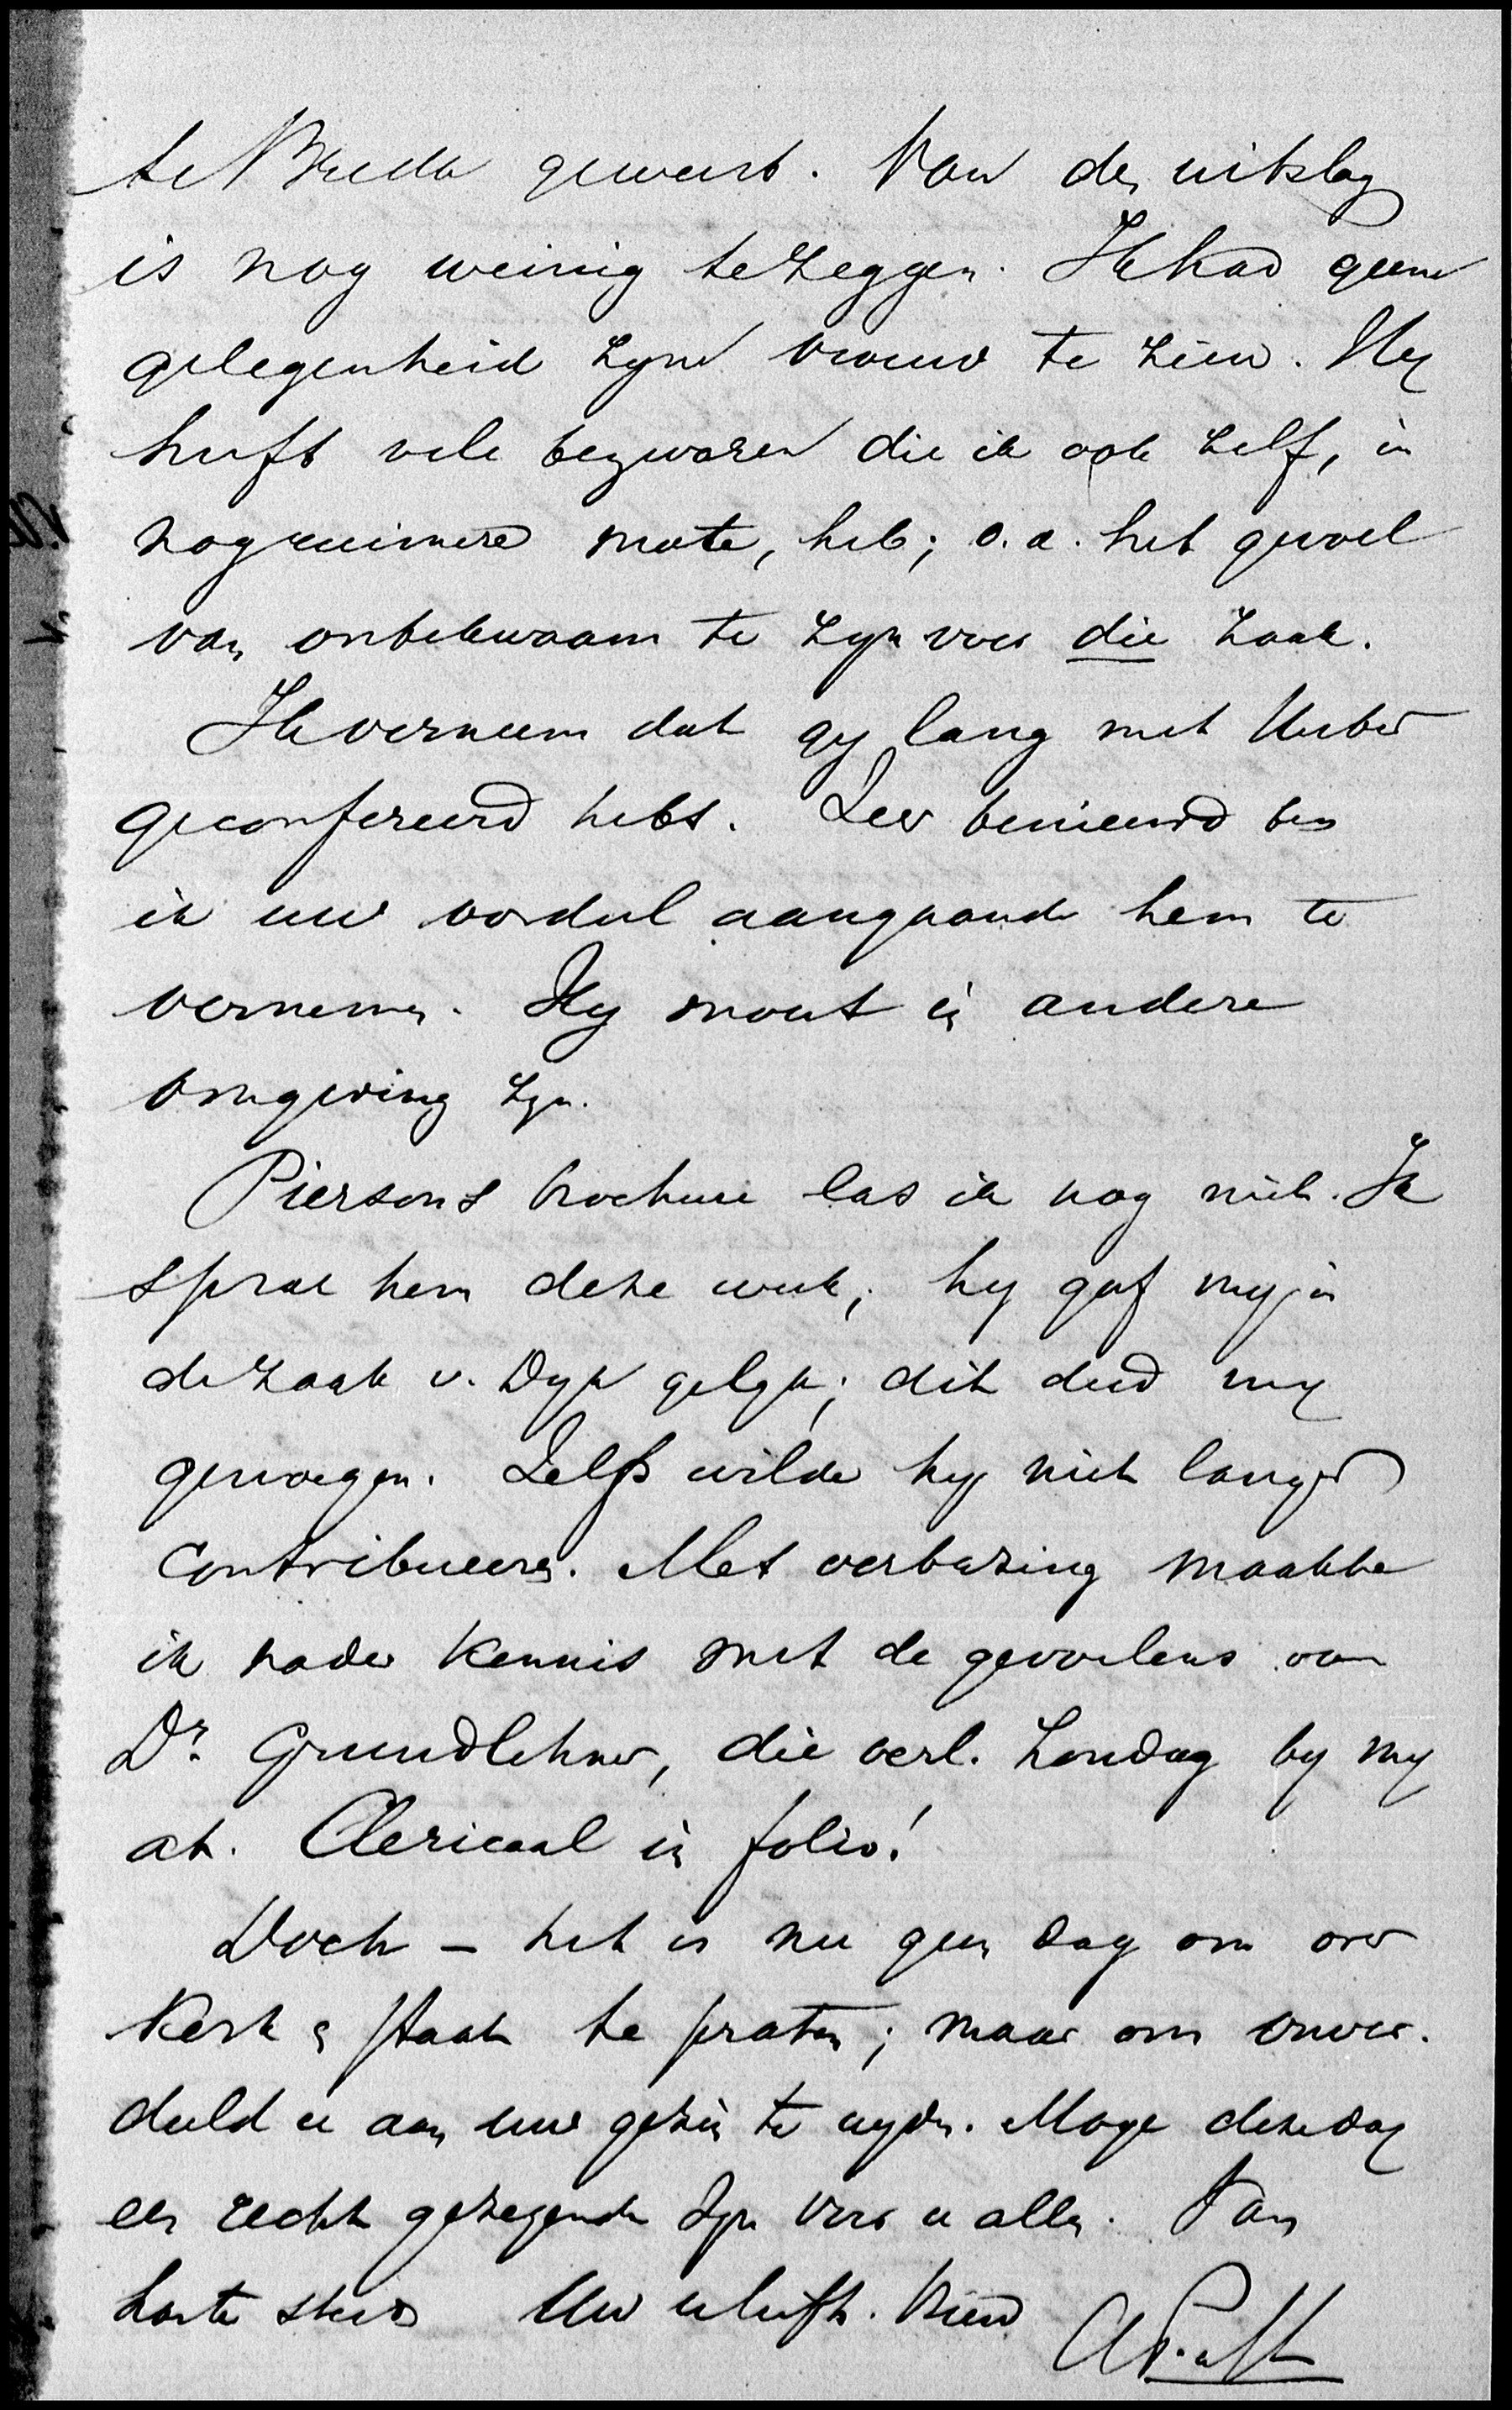 te Breda geweest. Van den uitslag
is nog weinig te zeggen. Ik had geene
gelegenheid zyne vrouw te zien. Hy
heeft vele bezwaren die ik ook zelf, in
nog ruimere mate, heb; o.a. het gevoel
van onbekwaam te zyn voor die zaak.
Ik verneem dat gy lang met Huber
geconfereerd hebt. Zeer benieuwd ben
ik uw oordeel aangaande hem te
vernemen. Hy moet in andere
omgeving zyn.
Piersons brochure las ik nog niet. Ik
sprak hem deze week; hy gaf my in
de zaak v. Dyk gelyk; dit deed my
genoegen. Zelfs wilde hy niet langer
contribueeren. Met verbazing maakte
ik nader kennis met de gevoelens van
Dr. Grundlehner, die verl. Zondag by my
at. Clericaal in folio!
Doch – het is nu geen dag om over
Kerk & Staat te praten; maar om onver-
deeld u aan uw gezin te wyden. Moge deze dag
een recht gezegende zyn voor u allen. Van
harte steeds Uw liefh. Vriend